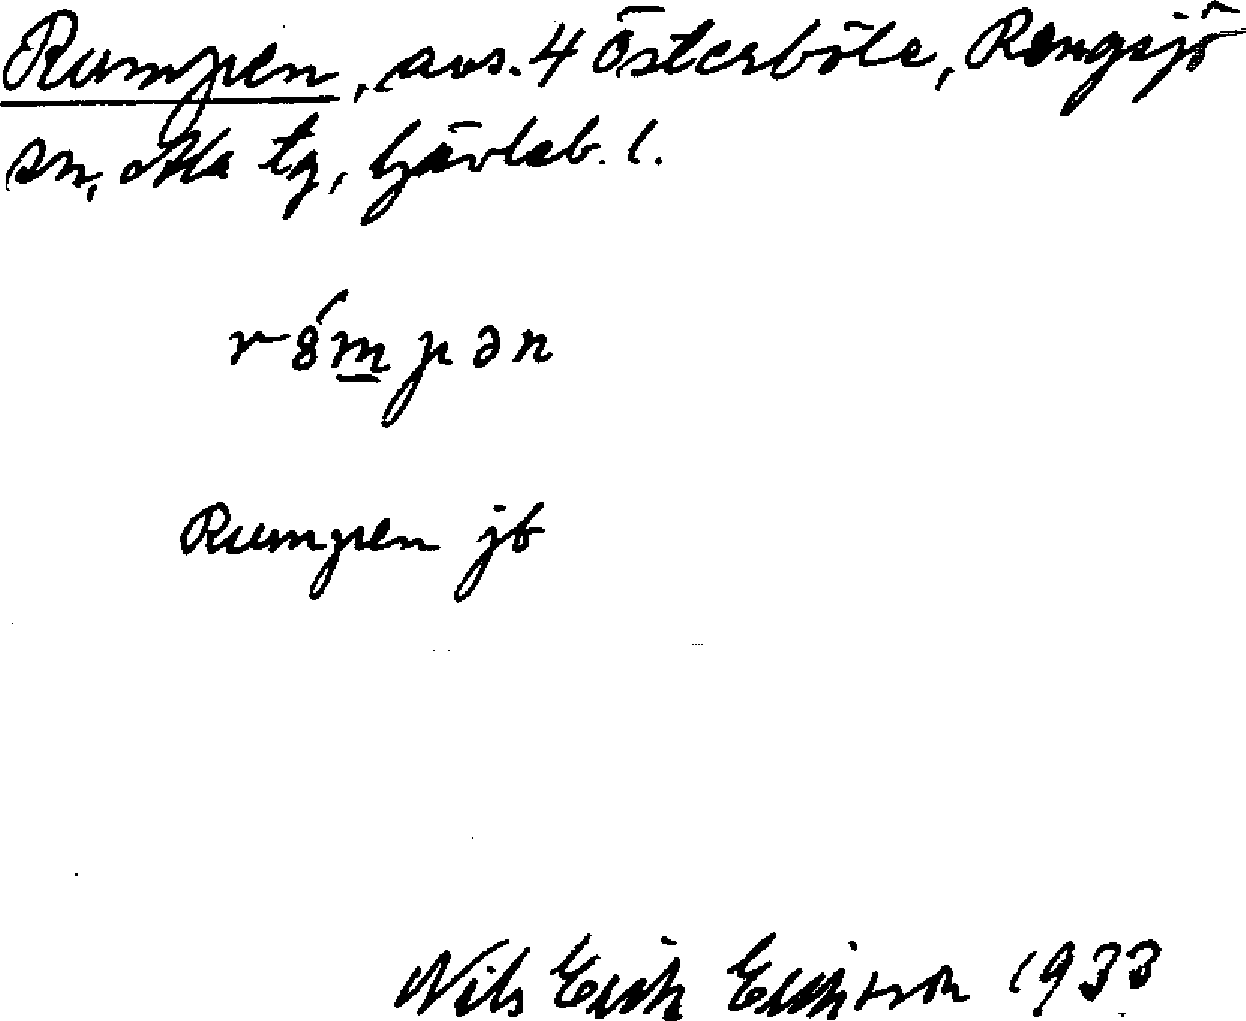 Rumpen, avs. 4 Österböle, Rengsjö
sn, Ala tg, Gävleb. l.
rómpən
Rumpen jb
Nils Erik Eriksson 1933